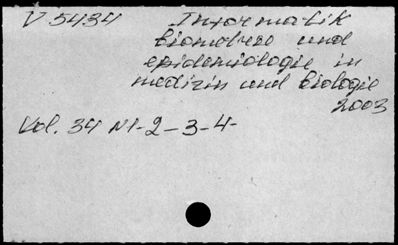 V 5434 Informatik
biometrie und
epidemiologie in
medizin und biologie
2003
Vol. 34 N1-2-3-4-